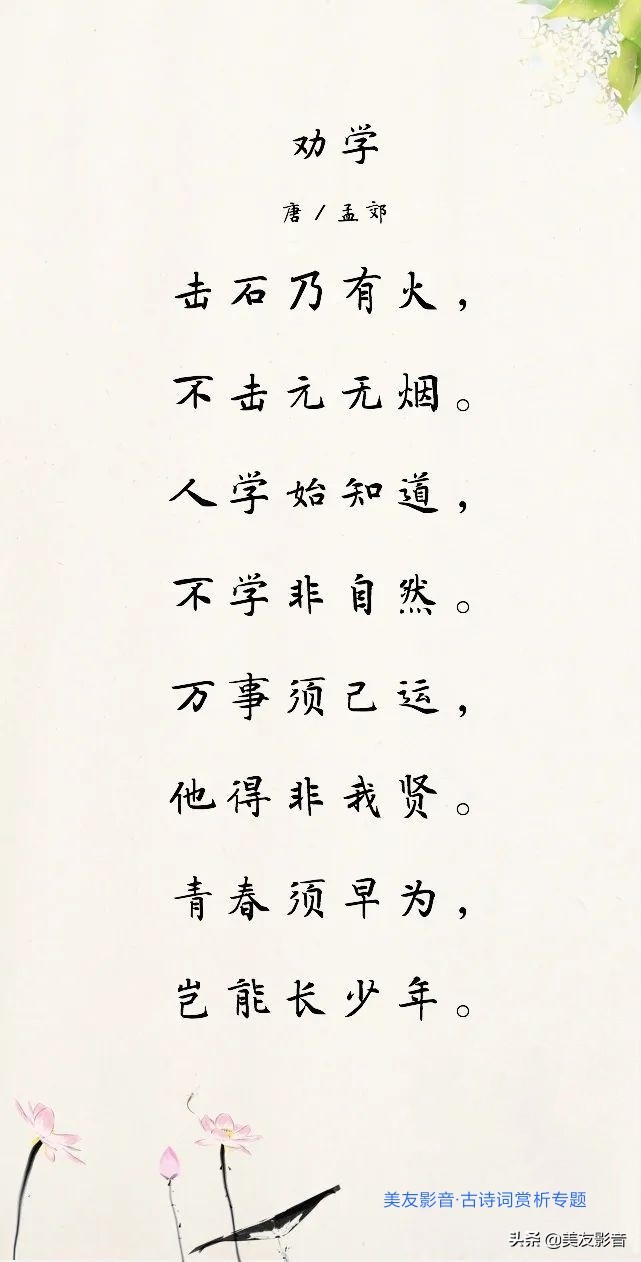 劝学
唐/孟郊
击石乃有火，
不击元无烟。
人学始知道，
不学非自然。
万事须己运，
他得非我贤。
青春须早为，
岂能长少年。
美友影音·古诗词赏析专题
头条 @美友影音